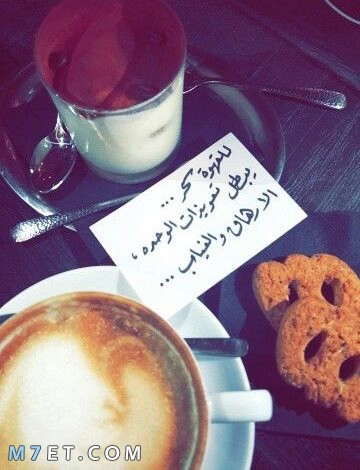 للقهوة سحر ...
يبطل تعويذات الوحده ,
الارهاق و الغياب ...
M7ET.COM